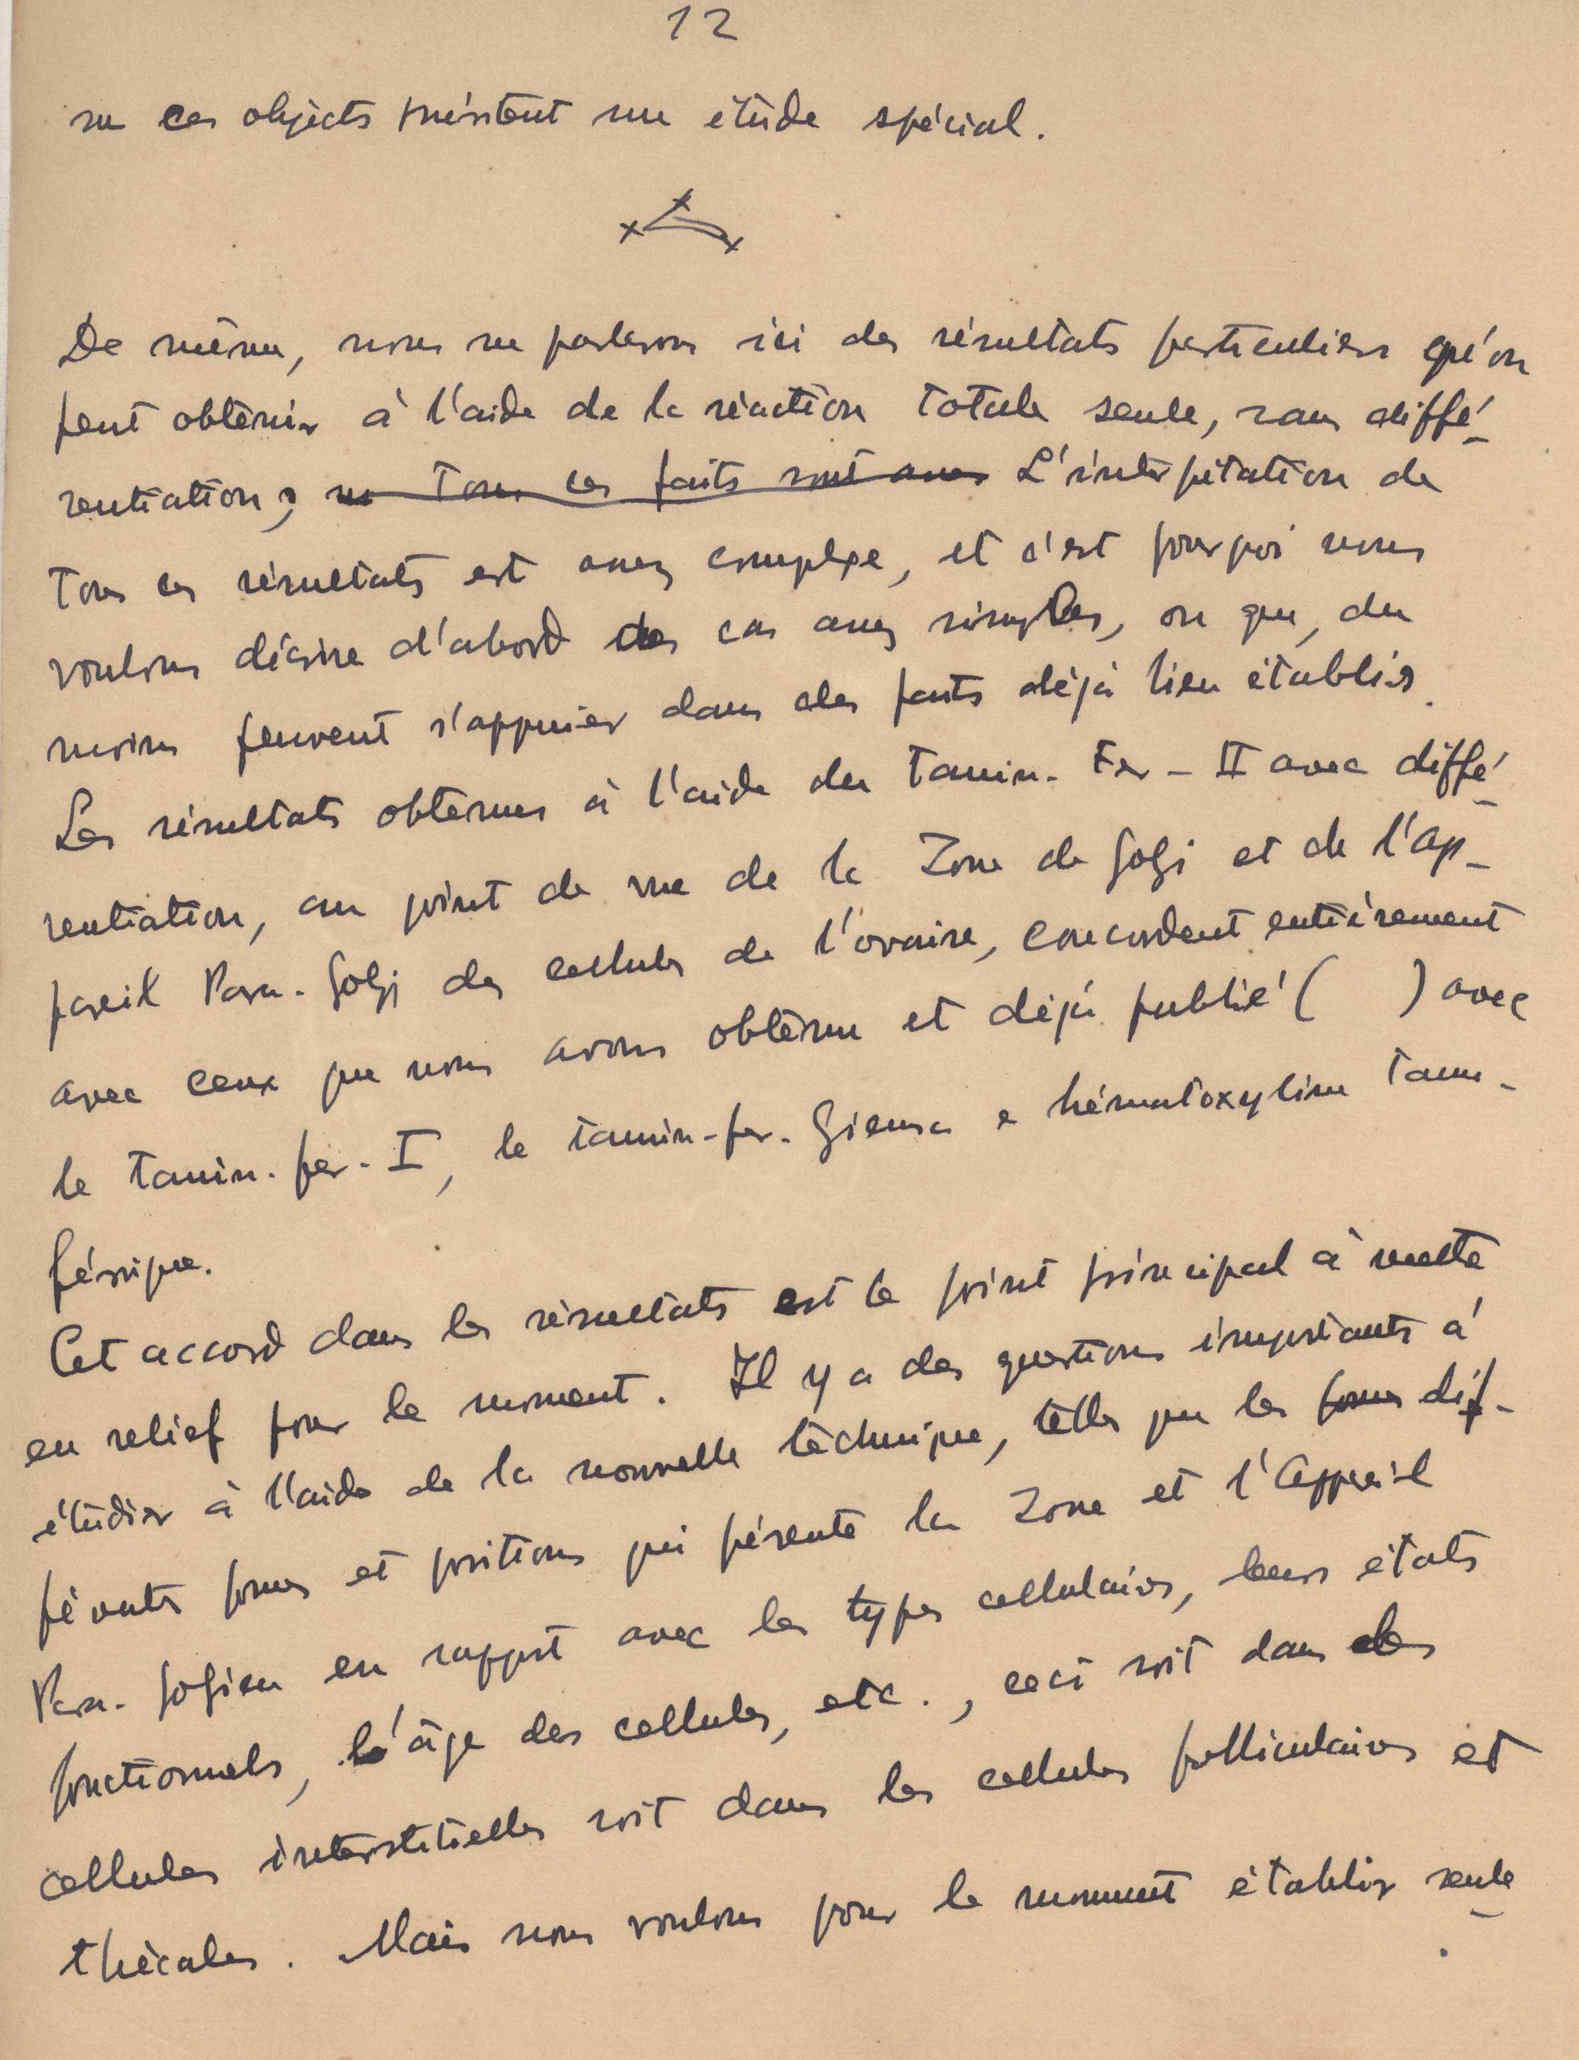 12
su ces objects méritent un étude spécial.
De même, nous ne parlerons ici des résultats particuliers qu'on
peut obtenir à l'aide de la réaction totale seule, sans diffé-
rentiation; Tous ces faits sont L'interpétation de
tous ces résultats est assez complexe, et c'est pourquoi nous
voulons décrire d'abord des cas assez simples, ou que, du
moins peuvent s'appuier dans des faits déjà bien établis.
Les résultats obtenus à l'aide du Tanin-Fer-II avec diffé-
rentiation, au point de vue de la Zone de Golgi et de l'ap-
pareil Para-Golgi des cellules de l'ovaire, concordent entièrement
avec ceux que nous avons obtenu et déjà publié ( ) avec
le Tanin-fer-I, le tanin-fer-Giemsa e hématoxyline tann-
férrique.
Cet accord dans les résultats est le point principal à mettre
en relief pour le moment. Il y a des questions importants à
étudier à l'aide de la nouvelle téchnique, telles que les formes dif-
férents formes et positions qui présente la Zone et l'Appareil
Para-Golgien en rapport avec les types cellulaires, leurs états
fonctionnels, l'âge des cellules, etc., ceci soit dans les
cellules interstitielles soit dans les cellules folliculaires et
thécales. Mais nous voulons pour le moment établir seule-